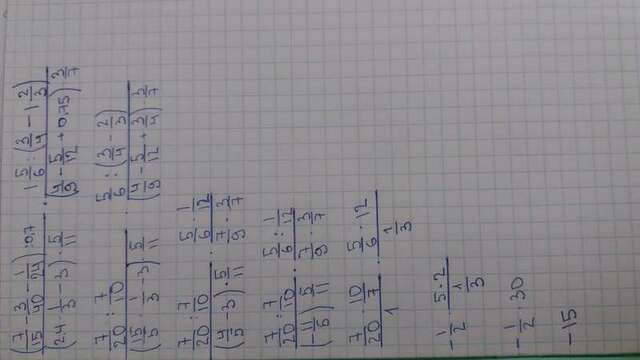 (7/15 - 3/40 - 1/24) : 0,7 / (24 · 1/3 - 3) · 5/11 · 1 5/6 : (3/4 - 1 2/3) / (4/9 - 5/12 + 0,75) · 3/7
7/20 : 7/10 / (15/5 · 1/3 - 3) · 5/11 · 5/6 : (3/4 - 2/3) / (4/9 - 5/12 + 3/4) · 3/7
7/20 : 7/10 / (4/5 - 3) · 5/11 · 5/6 · 1/12 / 7/9 · 3/7
7/20 : 7/10 / (-11/5) 5/11 · 5/6 : 1/12 / 7/9 · 3/7
7/20 · 10/7 / 1 · 5/6 · 12 / 1/3
-1/2 · 5·2 / 1/3
-1/2 · 30
-15